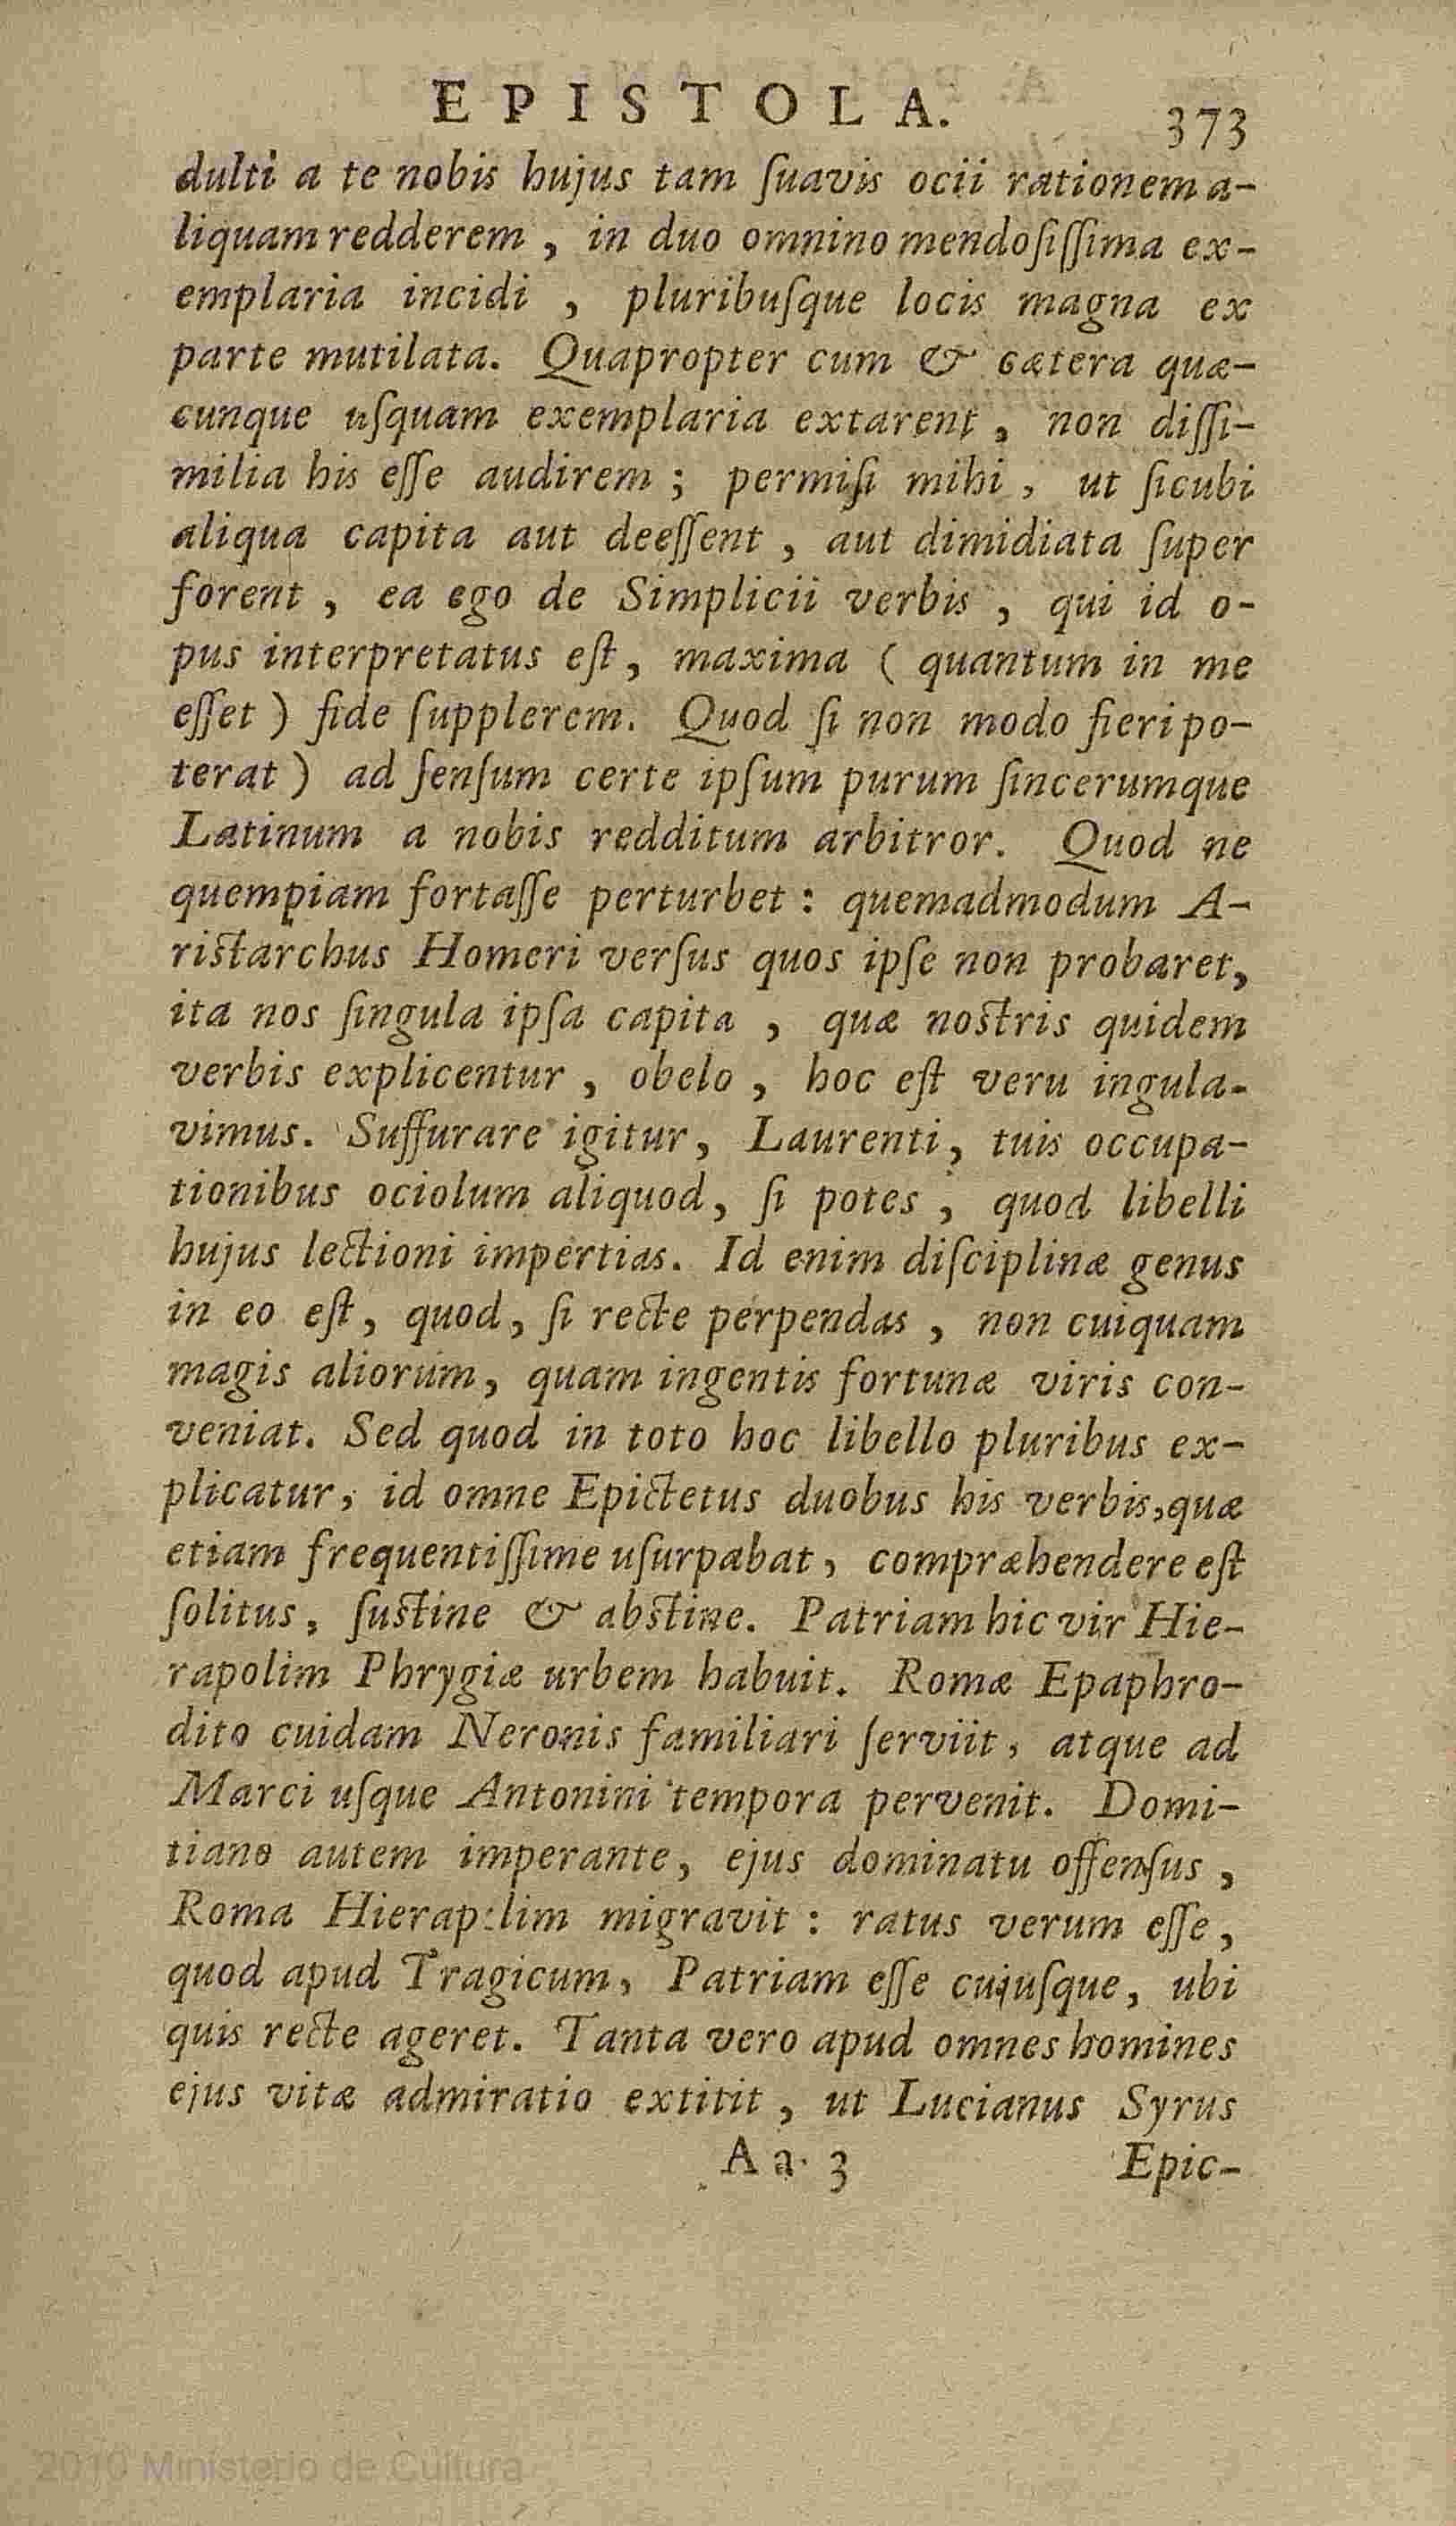 EPISTOLA. 373
dulti a te nobis hujus tam ſuavis ocii rationem a-
liquam redderem, in duo omnino mendoſiſſima ex-
emplaria incidi, pluribuſque locis magna ex
parte mutilata. Quapropter cum & cætera quæ-
cunque uſquam exemplaria extarent, non diſſi-
milia his eſſe audirem; permiſi mihi, ut ſicubi
aliqua capita aut deeſſent, aut dimidiata ſuper
forent, ea ego de Simplicii verbis, qui id o-
pus interpretatus eſt, maxima (quantum in me
eſſet) fide ſupplerem. Quod ſi non modo fieri po-
terat) ad ſenſum certe ipſum purum ſincerumque
Latinum a nobis redditum arbitror. Quod ne
quempiam fortaſſe perturbet: quemadmodum A-
riſtarchus Homeri verſus quos ipſe non probaret,
ita nos ſingula ipſa capita, quæ noſtris quidem
verbis explicentur, obelo, hoc eſt veru ingula-
vimus. Suffurare igitur, Laurenti, tuis occupa-
tionibus ociolum aliquod, ſi potes, quod libelli
hujus lectioni impertias. Id enim diſciplinæ genus
in eo eſt, quod, ſi recte perpendas, non cuiquam
magis aliorum, quam ingentis fortunæ viris con-
veniat. Sed quod in toto hoc libello pluribus ex-
plicatur, id omne Epictetus duobus his verbis, quæ
etiam frequentiſſime uſurpabat, compræhendere eſt
ſolitus, ſuſtine & abſtine. Patriam hic vir Hie-
rapolim Phrygiæ urbem habuit. Romæ Epaphro-
dito cuidam Neronis familiari ſerviit, atque ad
Marci uſque Antonini tempora pervenit. Domi-
tiano autem imperante, ejus dominatu offenſus,
Roma Hierap:lim migravit: ratus verum eſſe,
quod apud Tragicum, Patriam eſſe cujuſque, ubi
quis recte ageret. Tanta vero apud omnes homines
ejus vitæ admiratio extitit, ut Lucianus Syrus
Aa 3 Epic-
2010 Ministerio de Cultura